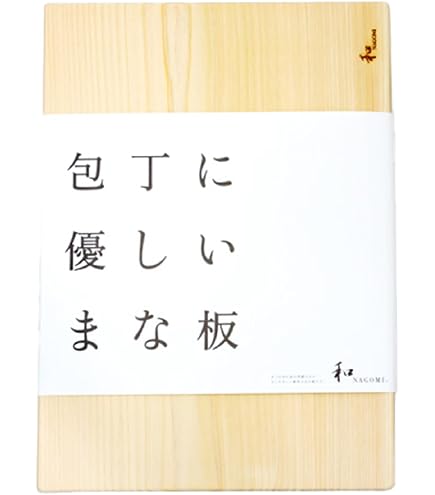 和
NAGOMI
包丁に
優しい
まな板
和
NAGOMI